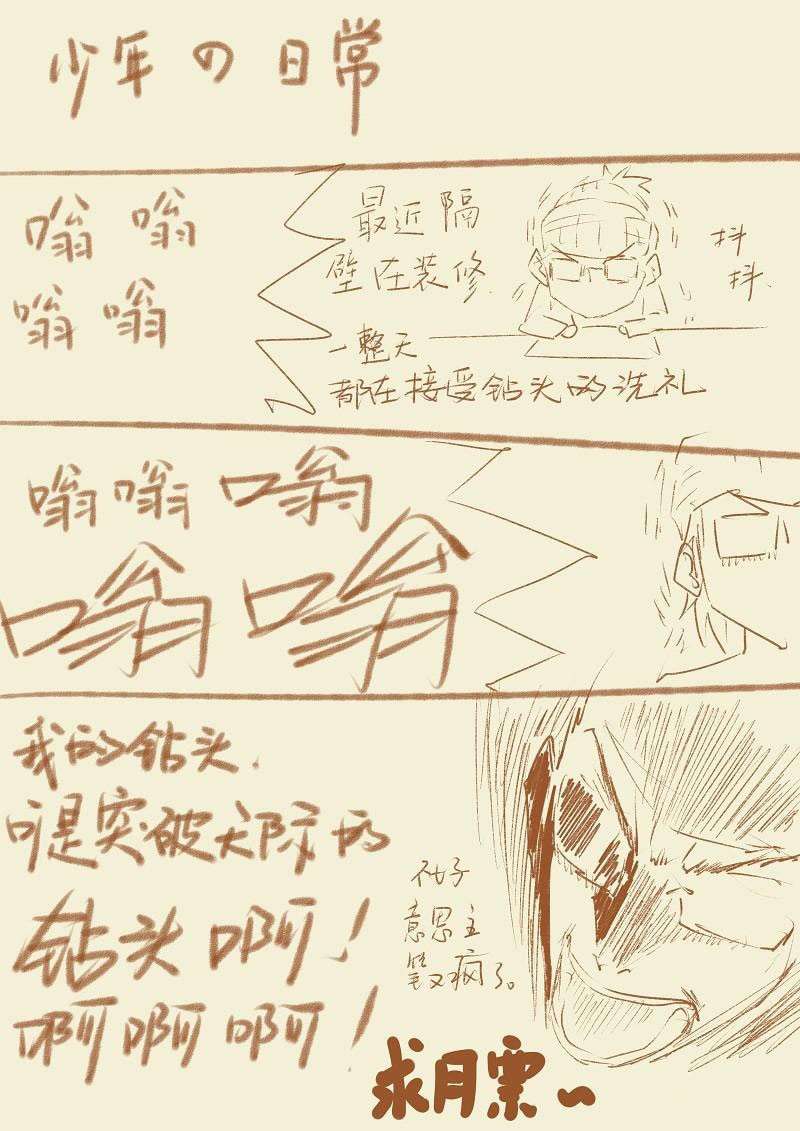 少年の日常
嗡 嗡
嗡 嗡
最近隔
壁在装修.
一整天
都在接受钻头的洗礼
抖
抖.
嗡嗡嗡
嗡嗡
我的钻头.
可是突破天际的
钻头啊!
啊啊啊!
不好
意思主
笔又疯了。
求月票~